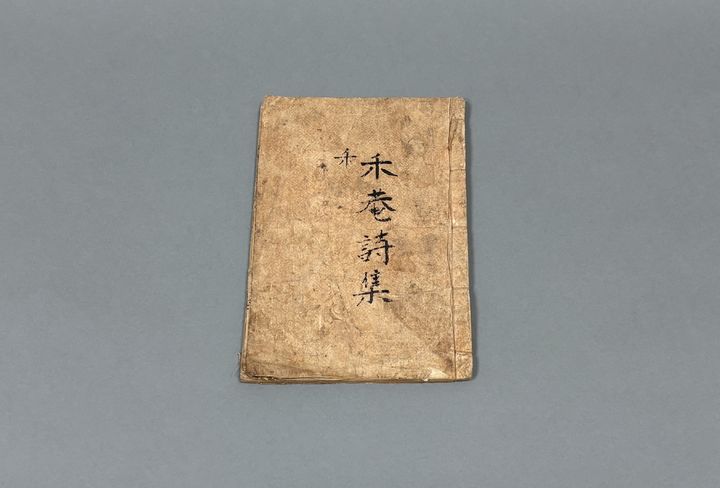 禾菴詩集
禾